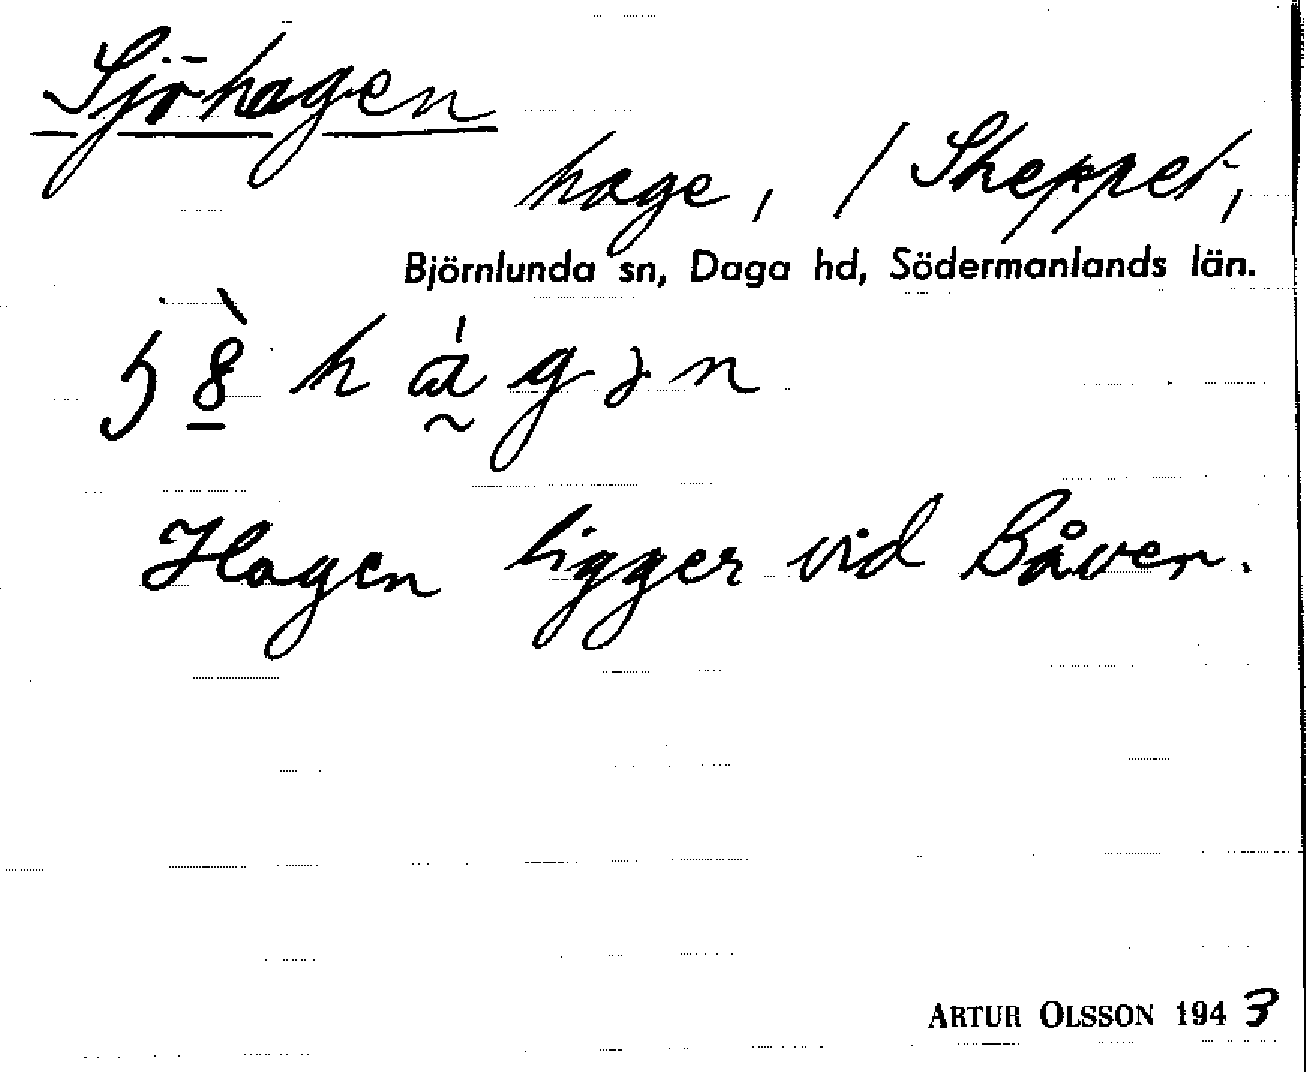 Sjöhagen
hage, / Skeppet,
Björnlunda sn, Daga hd, Södermanlands län.
Hagen ligger vid Båven.
ARTUR OLSSON 1943